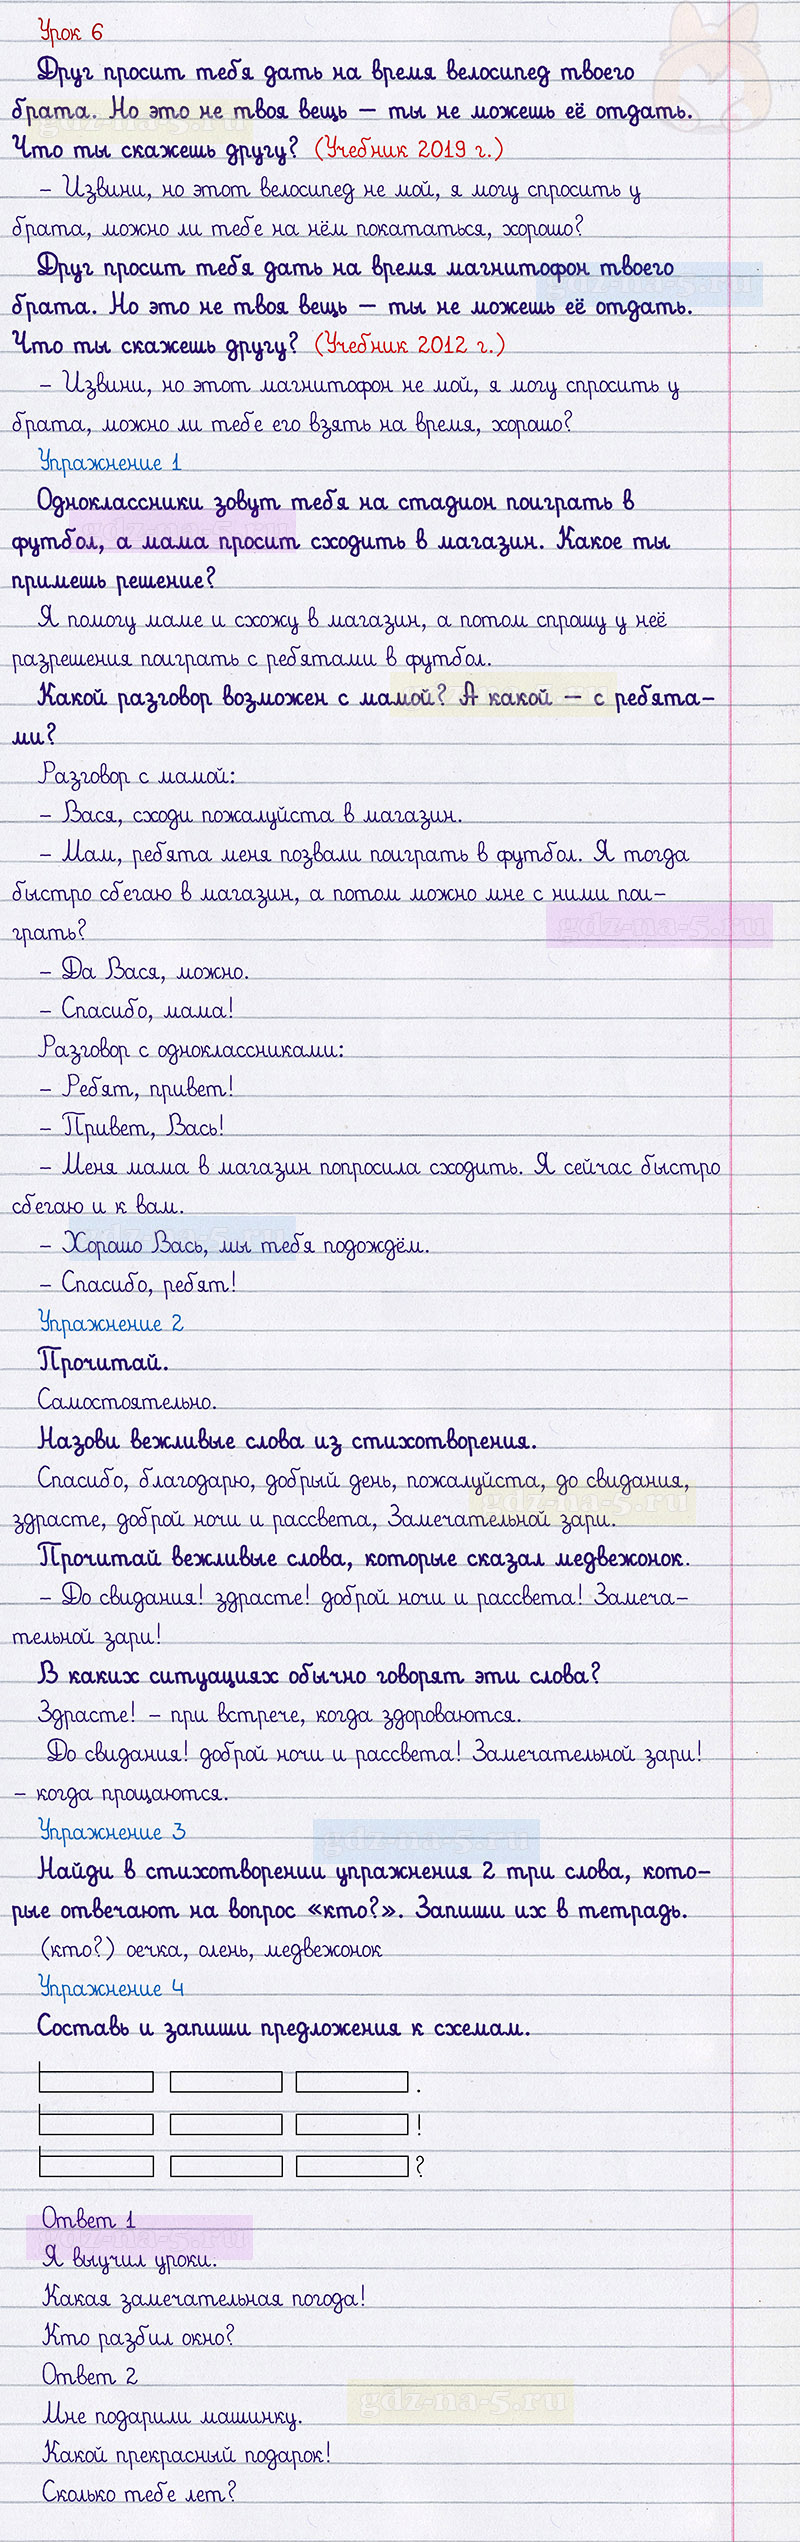 Урок 6
Друг просит тебя дать на время велосипед твоего
брата. Но это не твоя вещь — ты не можешь её отдать.
Что ты скажешь другу? (Учебник 2019 г.)
– Извини, но этот велосипед не мой, я могу спросить у
брата, можно ли тебе на нём покататься, хорошо?
Друг просит тебя дать на время магнитофон твоего
брата. Но это не твоя вещь — ты не можешь её отдать.
Что ты скажешь другу? (Учебник 2012 г.)
– Извини, но этот магнитофон не мой, я могу спросить у
брата, можно ли тебе его взять на время, хорошо?
Упражнение 1
Одноклассники зовут тебя на стадион поиграть в
футбол, а мама просит сходить в магазин. Какое ты
примешь решение?
Я помогу маме и схожу в магазин, а потом спрошу у неё
разрешения поиграть с ребятами в футбол.
Какой разговор возможен с мамой? А какой — с ребята-
ми?
Разговор с мамой:
– Вася, сходи пожалуйста в магазин.
– Мам, ребята меня позвали поиграть в футбол. Я тогда
быстро сбегаю в магазин, а потом можно мне с ними пои-
грать?
gdz-na-5.ru
– Да Вася, можно.
– Спасибо, мама!
Разговор с одноклассниками:
– Ребят, привет!
– Привет, Вась!
– Меня мама в магазин попросила сходить. Я сейчас быстро
сбегаю и к вам.
– Хорошо Вась, мы тебя подождём.
– Спасибо, ребят!
Упражнение 2
Прочитай.
Самостоятельно.
Назови вежливые слова из стихотворения.
Спасибо, благодарю, добрый день, пожалуйста, до свидания,
gdz-na-5.ru
здрасте, доброй ночи и рассвета, Замечательной зари.
Прочитай вежливые слова, которые сказал медвежонок.
– До свидания! здрасте! доброй ночи и рассвета! Замеча-
тельной зари!
В каких ситуациях обычно говорят эти слова?
Здрасте! – при встрече, когда здороваются.
До свидания! доброй ночи и рассвета! Замечательной зари!
– когда прощаются.
Упражнение 3
gdz-na-5.ru
Найди в стихотворении упражнения 2 три слова, кото-
рые отвечают на вопрос «кто?». Запиши их в тетрадь.
(кто?) оечка, олень, медвежонок
Упражнение 4
Составь и запиши предложения к схемам.
.
!
?
Ответ 1
gdz-na-5.ru
Я выучил уроки.
Какая замечательная погода!
Кто разбил окно?
Ответ 2
gdz-na-5.ru
Мне подарили машинку.
Какой прекрасный подарок!
Сколько тебе лет?